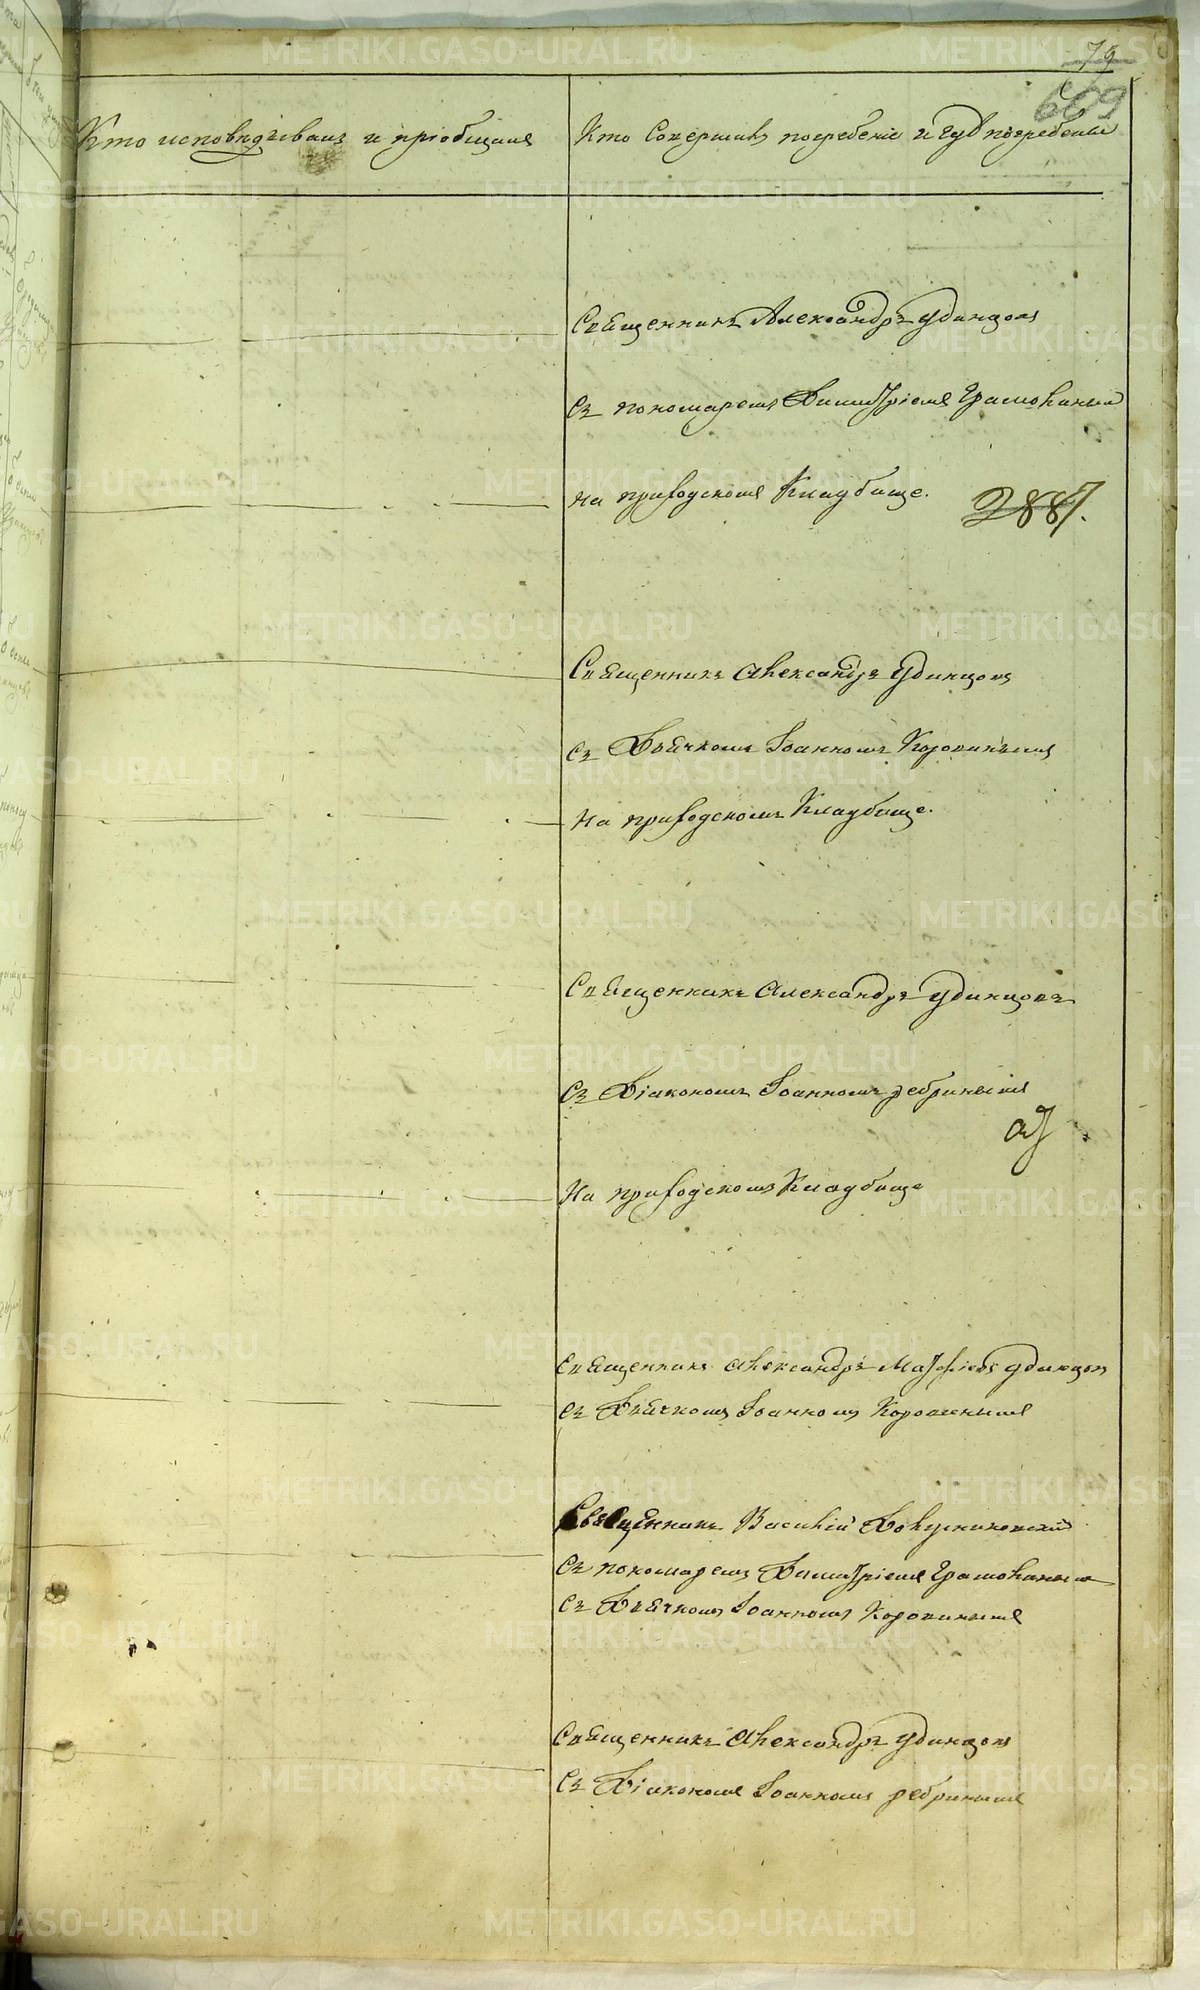 79
609
Кто исповѣдывалъ и пріобщалъ
Кто совершалъ погребеніе и гдѣ погребены
Священникъ Александръ Удинцовъ
съ пономаремъ Димитріемъ Грамолинымъ
на приходскомъ Кладбище.
2887.
Священникъ Александръ Удинцовъ
съ Дьячкомъ Іоанномъ Коровинымъ
На приходскомъ Кладбище.
Священникъ Александръ Удинцовъ
съ Діакономъ Іоанномъ Ребринымъ
На приходскомъ Кладбище
Священникъ Александръ Матфіевъ Удинцов
съ Дьячкомъ Іоанномъ Коровинымъ
Священникъ Василій
съ пономаремъ Димитріемъ Грамолинымъ
съ Дьячкомъ Іоанномъ Коровинымъ
Священникъ Александръ Удинцовъ
съ Діакономъ Іоанномъ Ребринымъ
METRIKI.GASO-URAL.RU